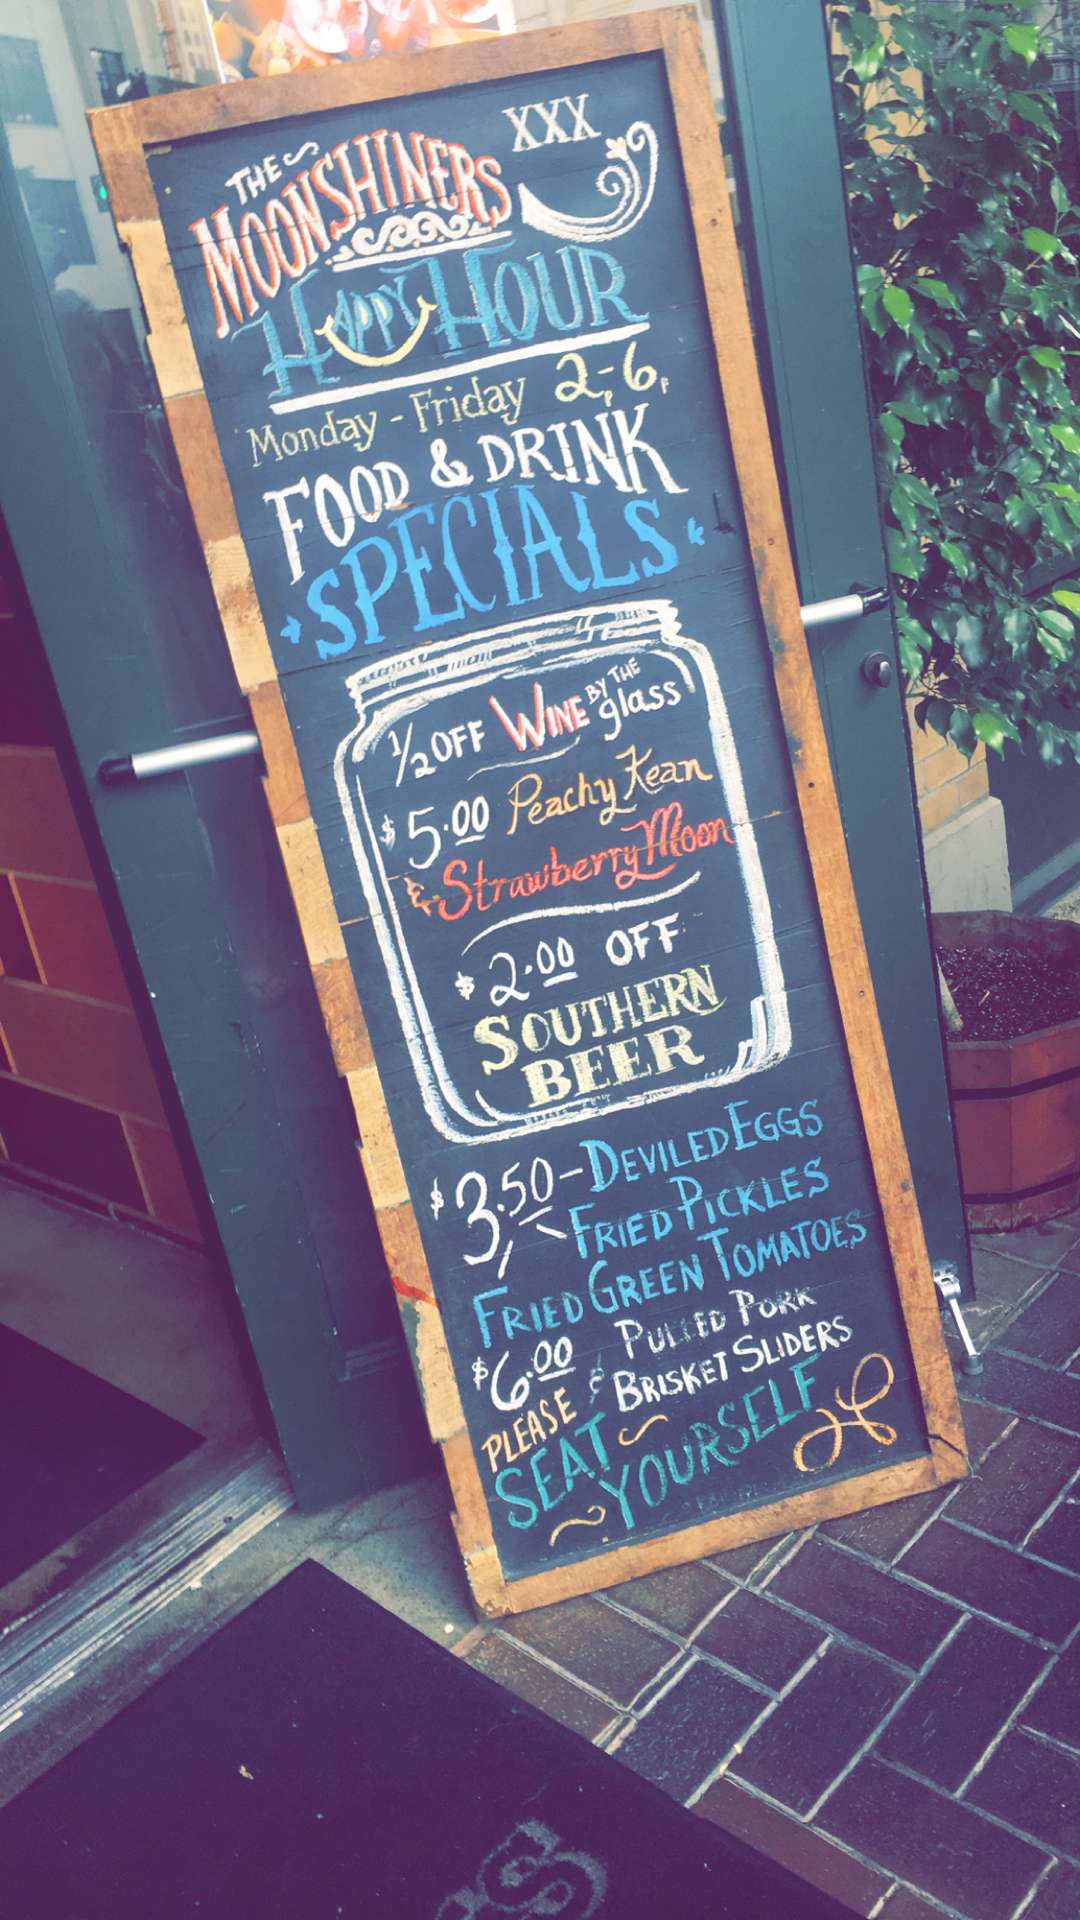 THE
MOONSHINERS XXX
HAPPY HOUR
Monday - Friday 2-6P
FOOD & DRINK
SPECIALS
1/2 OFF WINE BY THE glass
$5.00 Peachy Kean
& Strawberry Moon
$2.00 OFF
SOUTHERN
BEER
$3.50 - DEVILED EGGS
FRIED PICKLES
FRIED GREEN TOMATOES
$6.00 PULLED PORK
& BRISKET SLIDERS
PLEASE
SEAT
YOURSELF